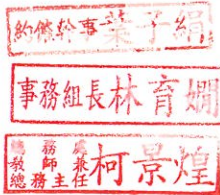 約僱幹事葉子絹
事務組長林育嫻
總務處
教師兼任
總務主任柯景煌